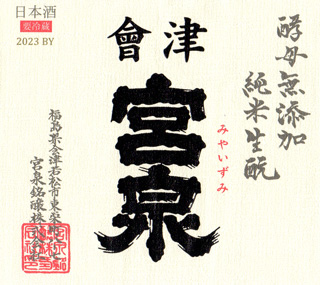 日本酒
要冷蔵
2023 BY
會津
宮泉
みやいずみ
酵母無添加
純米生酛
福島県会津若松市東栄町
宮泉銘醸株式会社